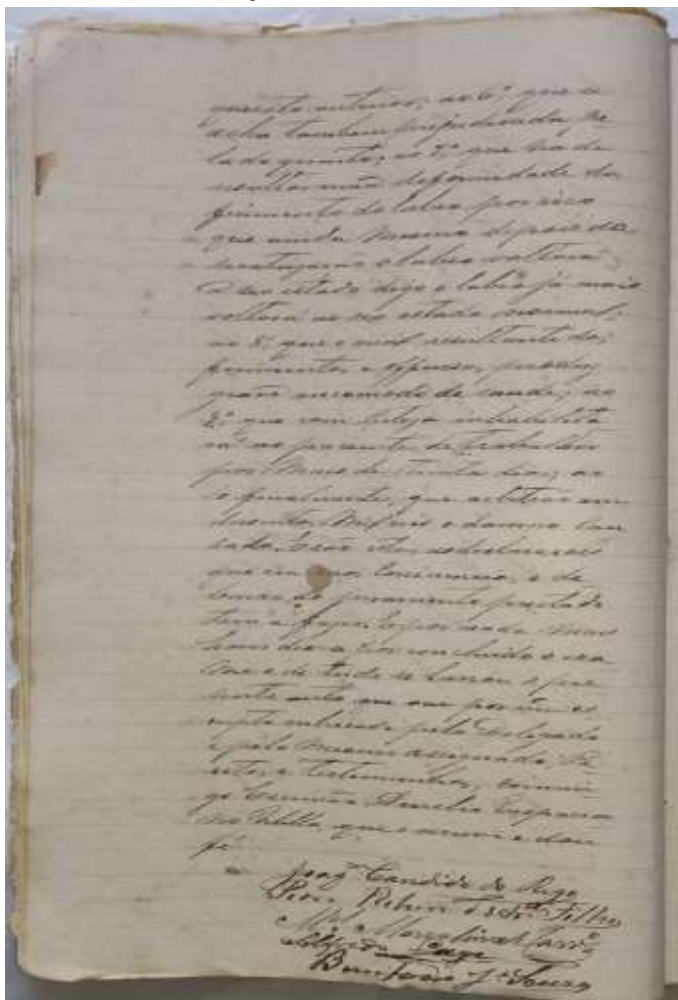 quesito anterior; ao 6º que se
acha tambem prejudicado pe
lo do quinto; ao 7º que ha de
resultar uma deformidade do
ferimento do labio, por isso
que ainda mesmo depois da
o labio voltara
a seo estado digo o labio já mais
voltará ao seo estado normal;
ao 8º que o mal resultante do
ferimento e offensa, produz
grave incommodo de saude; ao
9º que com inhabilita
rá ao paciente de trabalhar
por mais de trinta dias; ao
10 finalmente, que arbitrão em
duzentos mil reis o damno cau
sado. E são estas as declarações
que em sua consciencia, e de
baixo do juramento prestado
tem a fazer. E por nada mais
haver deo-se por concluido o exa
me e de tudo se lavrou o pre
sente auto que vai por mim es
cripto rubricado pelo Delegado
e pelo mesmo assignado, Pe
ritos, e testemunhas, commi
go Escrivão Aurelio
que o escrevi e dou
fé.
Joaqm Candido do Rego
Filho
Mel Marcolino
Bem J. Souza